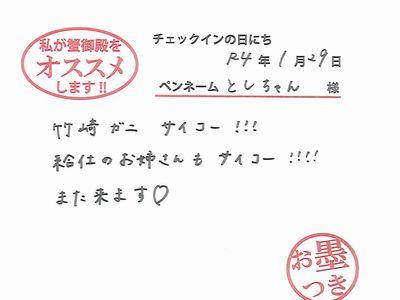 私が蟹御殿を
オススメ
します!!
チェックインの日にち
R4 年 1 月 29 日
ペンネーム としちゃん 様
竹崎 ガニ サイコー !!!
給仕のお姉さんも サイコー !!!!
また 来ます♡
お墨
つき